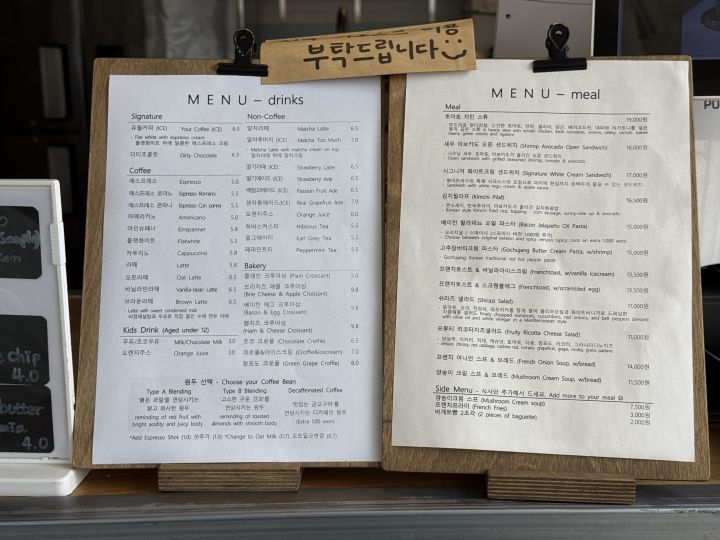 부탁드립니다
MENU – drinks
Signature
유월커피 (ICE) Your Coffee (ICE) 6.3
- Flat white with espresso cream
더티초콜릿 Dirty Chocolate 6.3
Coffee
에스프레소 Espresso 5.0
에스프레소 로마노 Espresso Romano 5.5
에스프레소 콘파나 Espresso Con panna 5.5
아메리카노 Americano 5.0
아인슈페너 Einspanner 5.8
플랫화이트 Flatwhite 5.5
카푸치노 Cappuccino 5.5
라떼 Latte 5.8
오트라떼 Oat Latte 6.5
바닐라빈라떼 Vanilla-bean Latte 6.5
브라운라떼 Brown Latte 6.5
- Latte with sweet condensed milk
Kids Drink (Aged under 12)
우유/초코우유 Milk/Chocolate Milk 3.0
오렌지주스 Orange Juice 3.0
Non-Coffee
말차라떼 Matcha Latte 6.5
말차투머치 (ICE) Matcha Too Much 7.0
- Matcha Latte with matcha cream on top
말차라떼 위에 말차크림
딸기라떼 (ICE) Strawberry Latte 6.5
딸기에이드 (ICE) Strawberry Ade 6.5
백향과에이드 (ICE) Passion Fruit Ade 6.5
생자몽에이드(ICE) Real-Grapefruit Ade 7.0
오렌지주스 Orange Juice 6.0
히비스커스티 Hibiscus Tea 5.5
얼그레이티 Earl Grey Tea 5.5
페퍼민트티 Peppermint Tea 5.5
Bakery
플레인 크루아상 (Plain Croissant) 5.0
브리치즈 애플 크루아상 9.8
(Brie Cheese & Apple Croissant)
베이컨 에그 크루아상 9.8
(Bacon & Egg Croissant)
햄치즈 크루아상 9.8
(Ham & Cheese Croissant)
초코 크로플 (Chocolate Croffle) 6.5
크로플&아이스크림 (Croffle&icecream) 7.0
청포도 크로플 (Green Grape Croffle) 8.0
원두 선택 - Choose your Coffee Bean
Type A Blending
'붉은 과일'을 연상시키는
밝고 화사한 원두
reminding of red fruit with
bright acidity and juicy body
Type B Blending
'고소한 구운 견과'를
연상시키는 원두
reminding of toasted
almonds with smooth body
Decaffeinated Coffee
'맛있는 군고구마'를
연상시키는 디카페인 원두
(Extra 500 won)
*Add Espresso Shot (1.0) 샷추가 (1.0) *Change to Oat Milk (0.7) 오트밀크변경 (0.7)
MENU – meal
Meal
토마토 치킨 스튜 19,000원
새우 아보카도 오픈 샌드위치 (Shrimp Avocado Open Sandwich) 18,000원
- Open sandwich with grilled seasoned shrimp, tomato & avocado
시그니처 화이트크림 샌드위치 (Signature White Cream Sandwich) 17,000원
김치필라프 (Kimchi Pilaf) 16,500원
- Korean style Kimchi fried rice, topping - corn sausage, sunny-side up & avocado
베이컨 할라피뇨 오일 파스타 (Bacon Jalapeño Oil Pasta) 15,000원
- Choose between original version and spicy version (spicy costs an extra 1,000 won)
고추장버터크림 파스타 (Gochujang Butter Cream Pasta, w/shrimp) 15,000원
- Gochujang: Korean traditional red hot pepper paste
프렌치토스트 & 바닐라아이스크림 (Frenchtoast, w/vanilla Icecream) 13,500원
프렌치토스트 & 스크램블에그 (Frenchtoast, w/scrambled egg) 13,500원
쉬라즈 샐러드 (Shirazi Salad) 11,000원
with olive oil and white vinegar in a Mediterranean style
프루티 리코타치즈샐러드 (Fruity Ricotta Cheese Salad) 15,000원
프렌치 어니언 스프 & 브레드 (French Onion Soup, w/bread) 14,000원
양송이 크림 스프 & 브레드 (Mushroom Cream Soup, w/bread) 11,500원
Side Menu – 식사와 추가해서 드세요. Add more to your meal
양송이크림 스프 (Mushroom Cream soup) 7,500원
프렌치프라이 (French Fries) 3,000원
바게트빵 2조각 (2 pieces of baguette) 2,000원
chip
4.0
butter
4.0